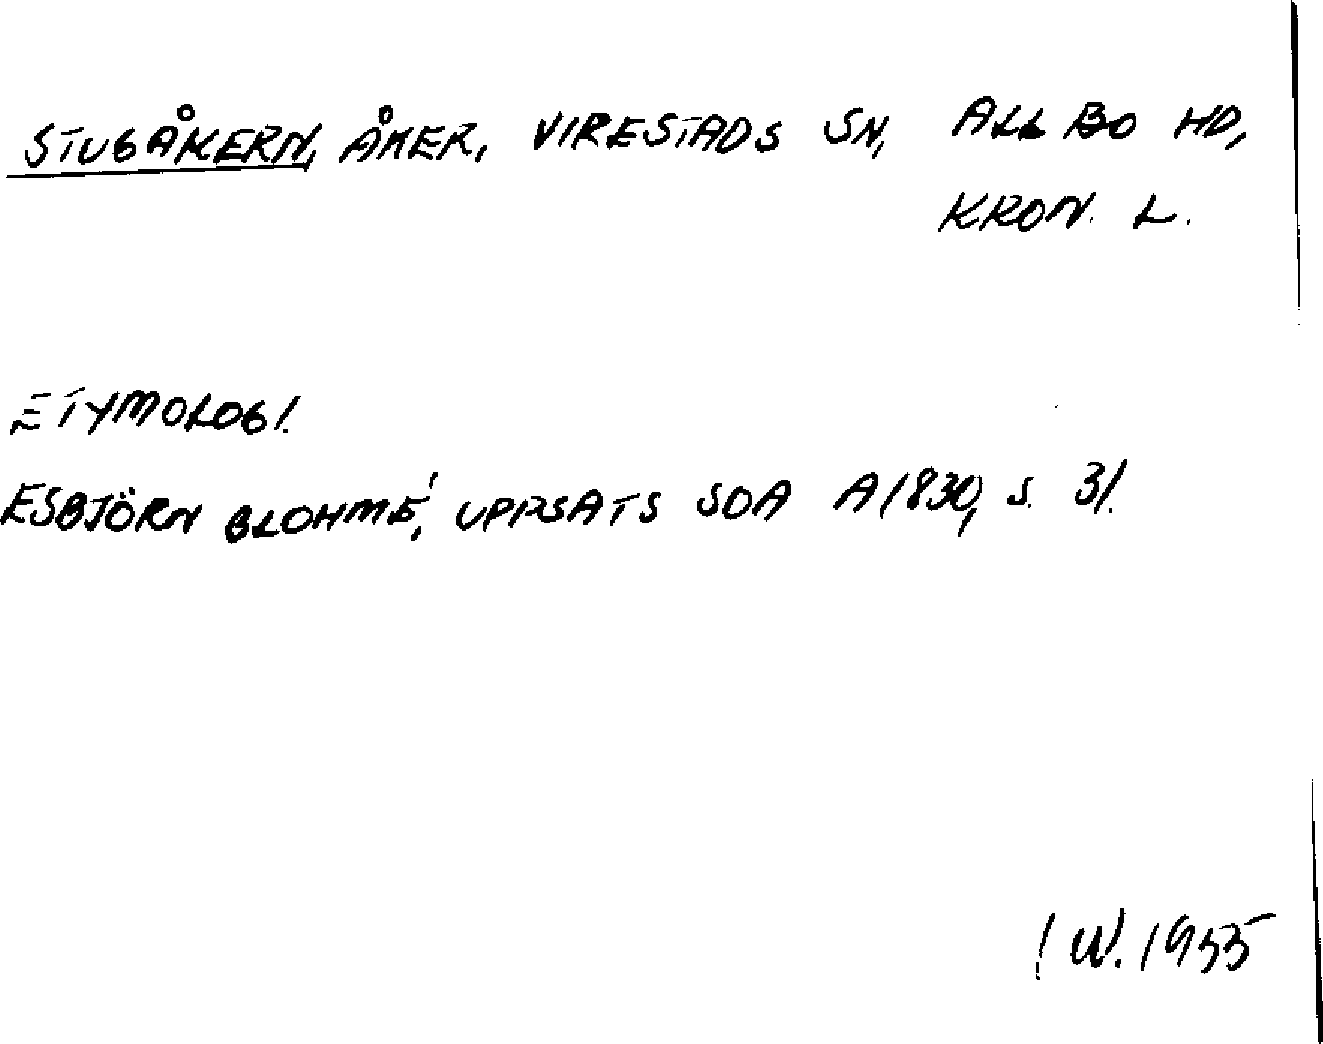 STUBÅKERN, ÅKER, VIRESTADS SN, ALLBO HD,
KRON. L.
ETYMOLOGI.
ESBJÖRN BLOHMÉ, UPPSATS SOA A1830, S. 31.
! W. 1955